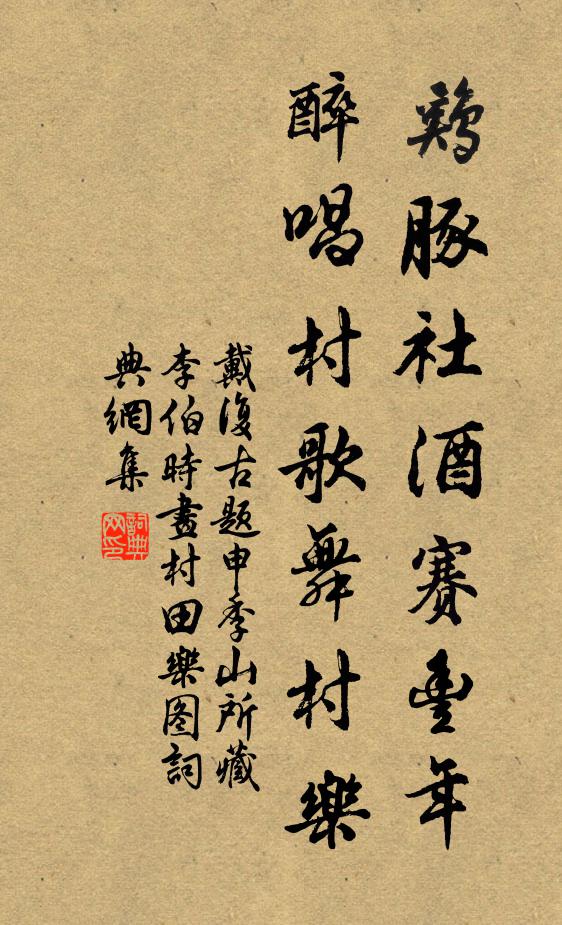 鷄豚社酒賽豐年
醉唱村歌舞村樂
戴復古題申季山所藏
李伯時畫村田樂图詞
典網集
詞典网印